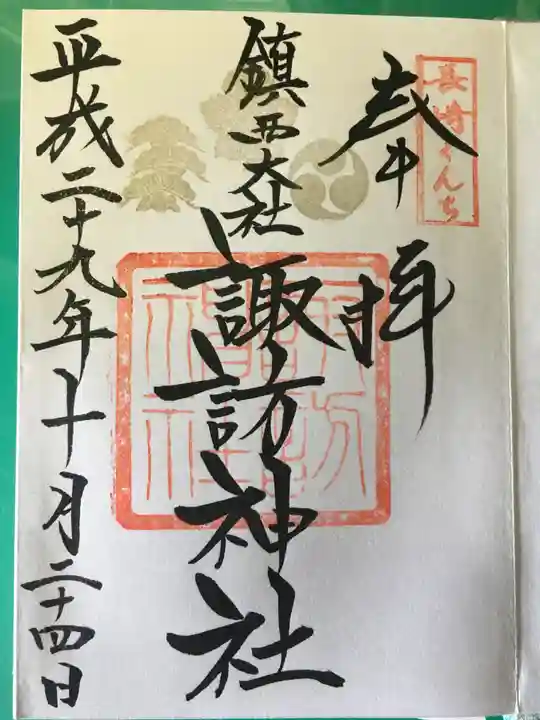 長崎くんち
奉拝
鎮西大社
諏訪神社
平成二十九年十月二十四日
諏訪神社